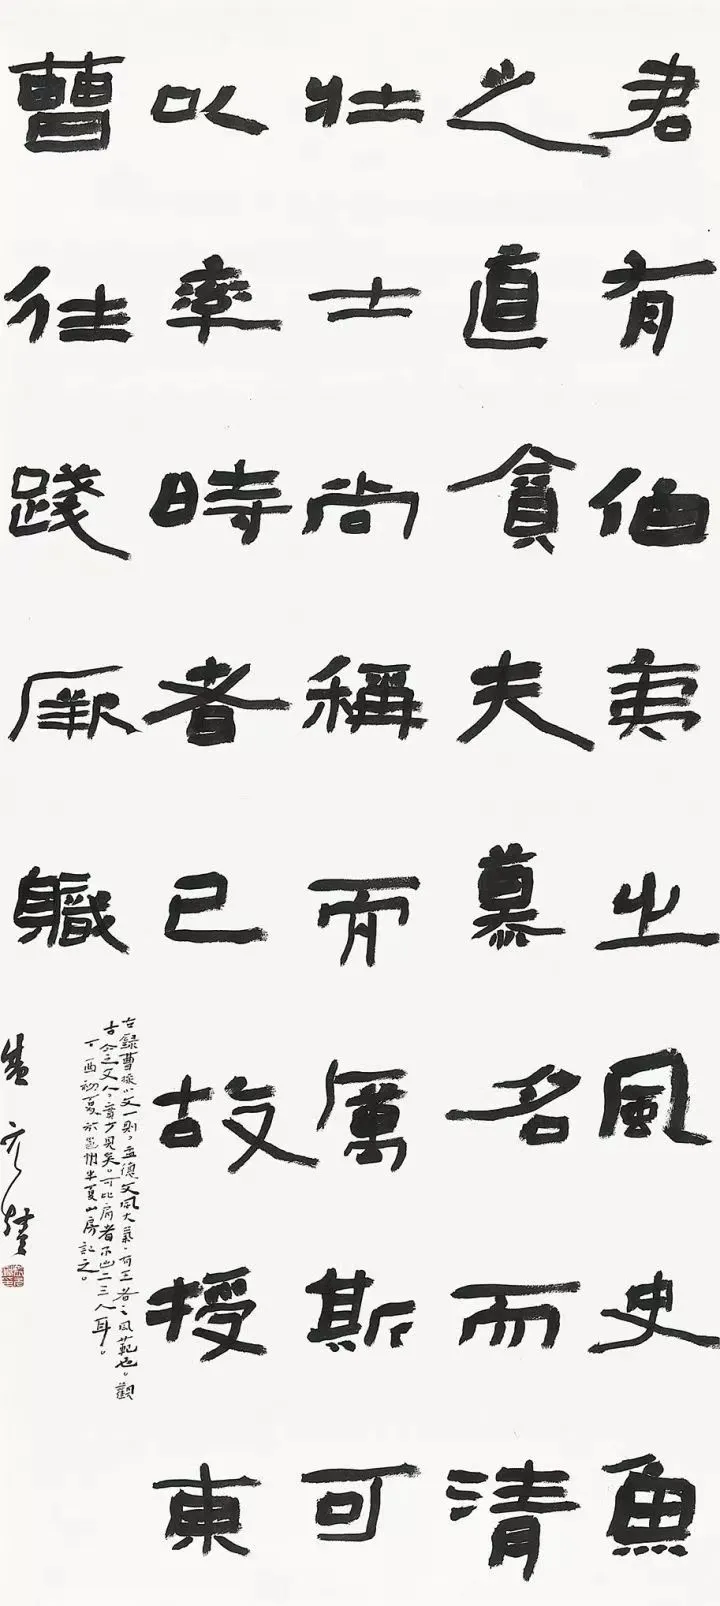 君有伯夷之風史魚
之直貪夫慕名而清
壯士尚稱而厲斯可
以率時者已故授東
曹往踐厥職
左錄曹操小文一則，孟德文風大氣，有王者之風範也。觀
古今之文人，罕見矣。可比肩者不出二三人耳。
丁酉初夏於邕州半夏山房記之。